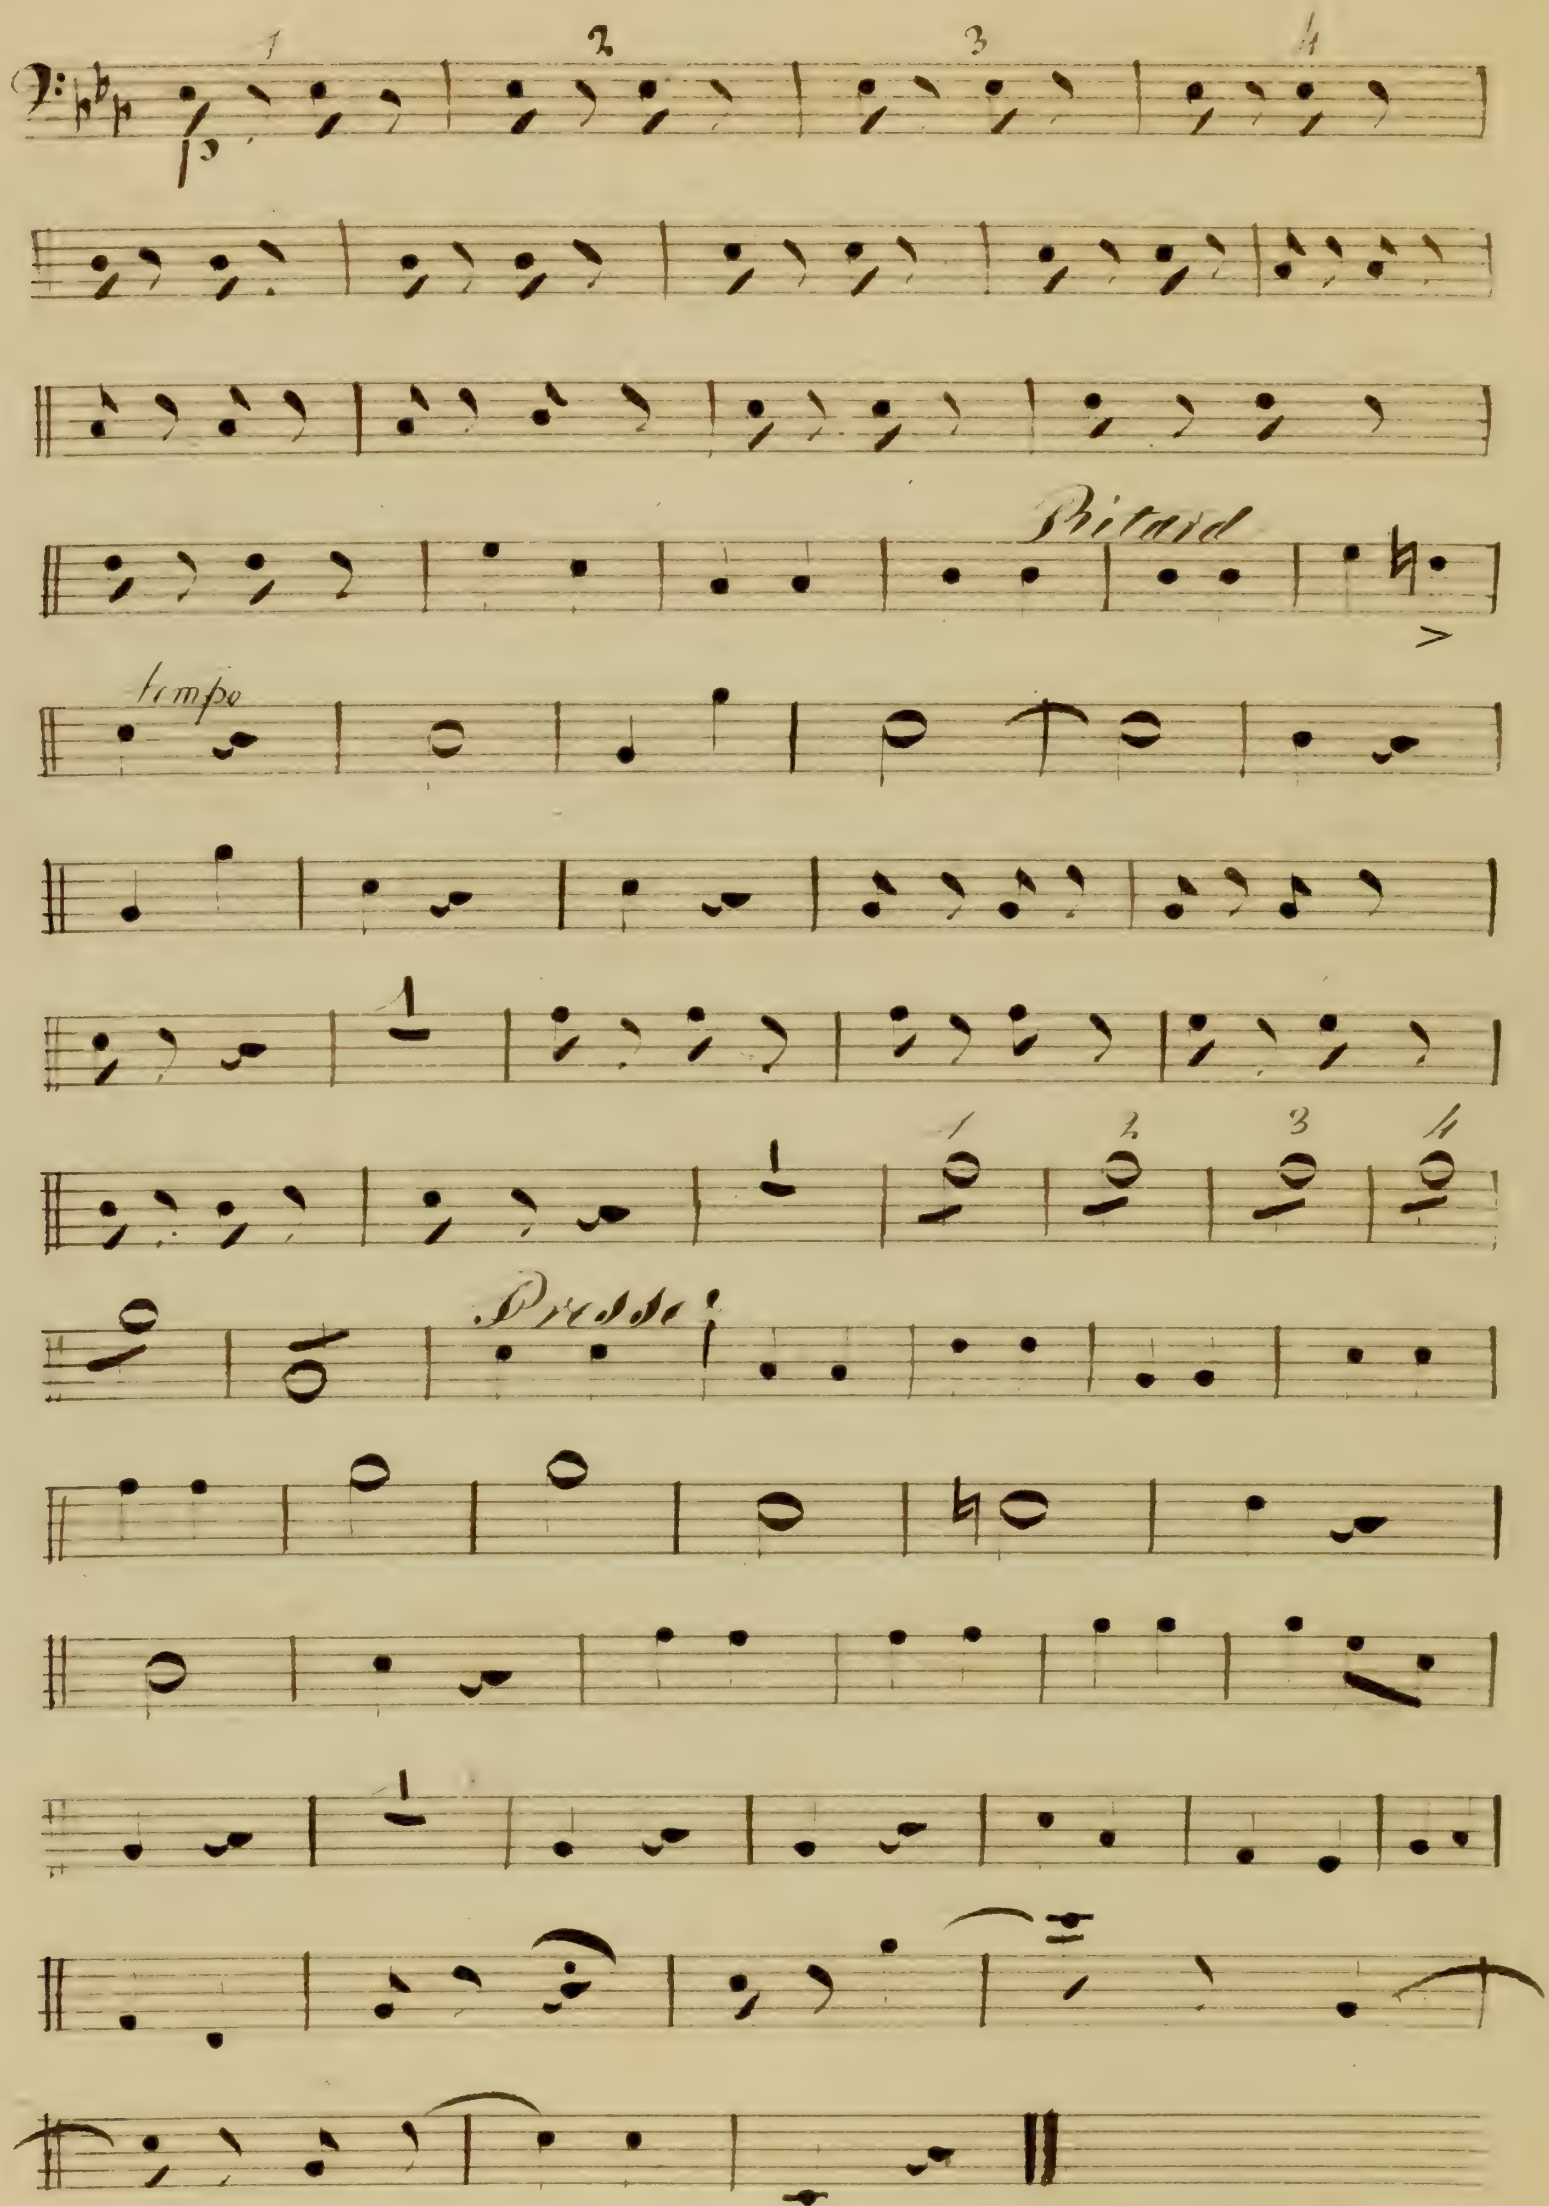 1 2 3 4
p
Ritard
tempo
1
1
1 2 3 4
Presse
1